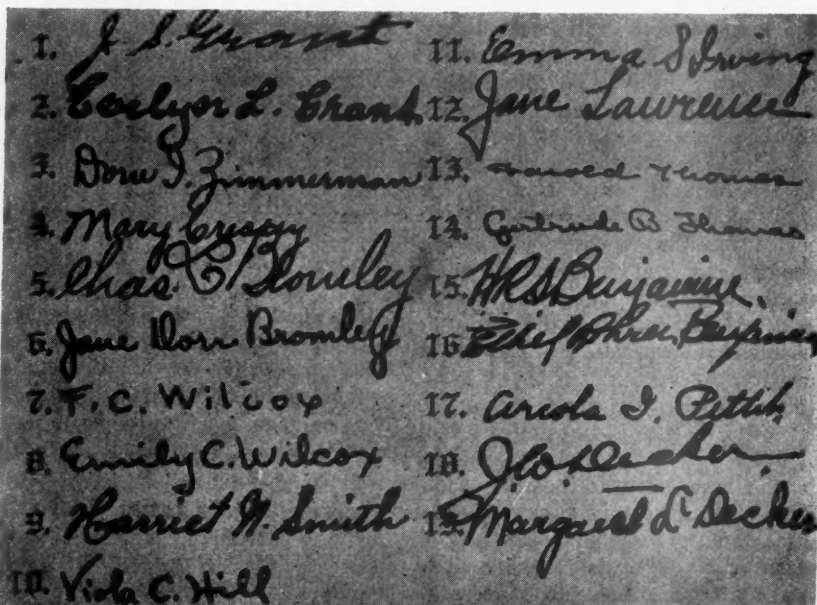 1. J. S. Grant
2. Evelyn L. Grant
3. Dora I. Zimmerman
4. Mary
5. Chas. C Bromley
6. Jane Dorr Bromley
7. F. C. Wilcox
8. Emily C. Wilcox
9. Harriet N. Smith
10. Viola C. Hill
11. Emma S Irving
12. Jane Lawrence
13. Thomas
14. Gertrude B Thomas
15. H R S Benjamin
16. Benjamin
17. I. Pettih
18. Decker
19. Margaret L Decker